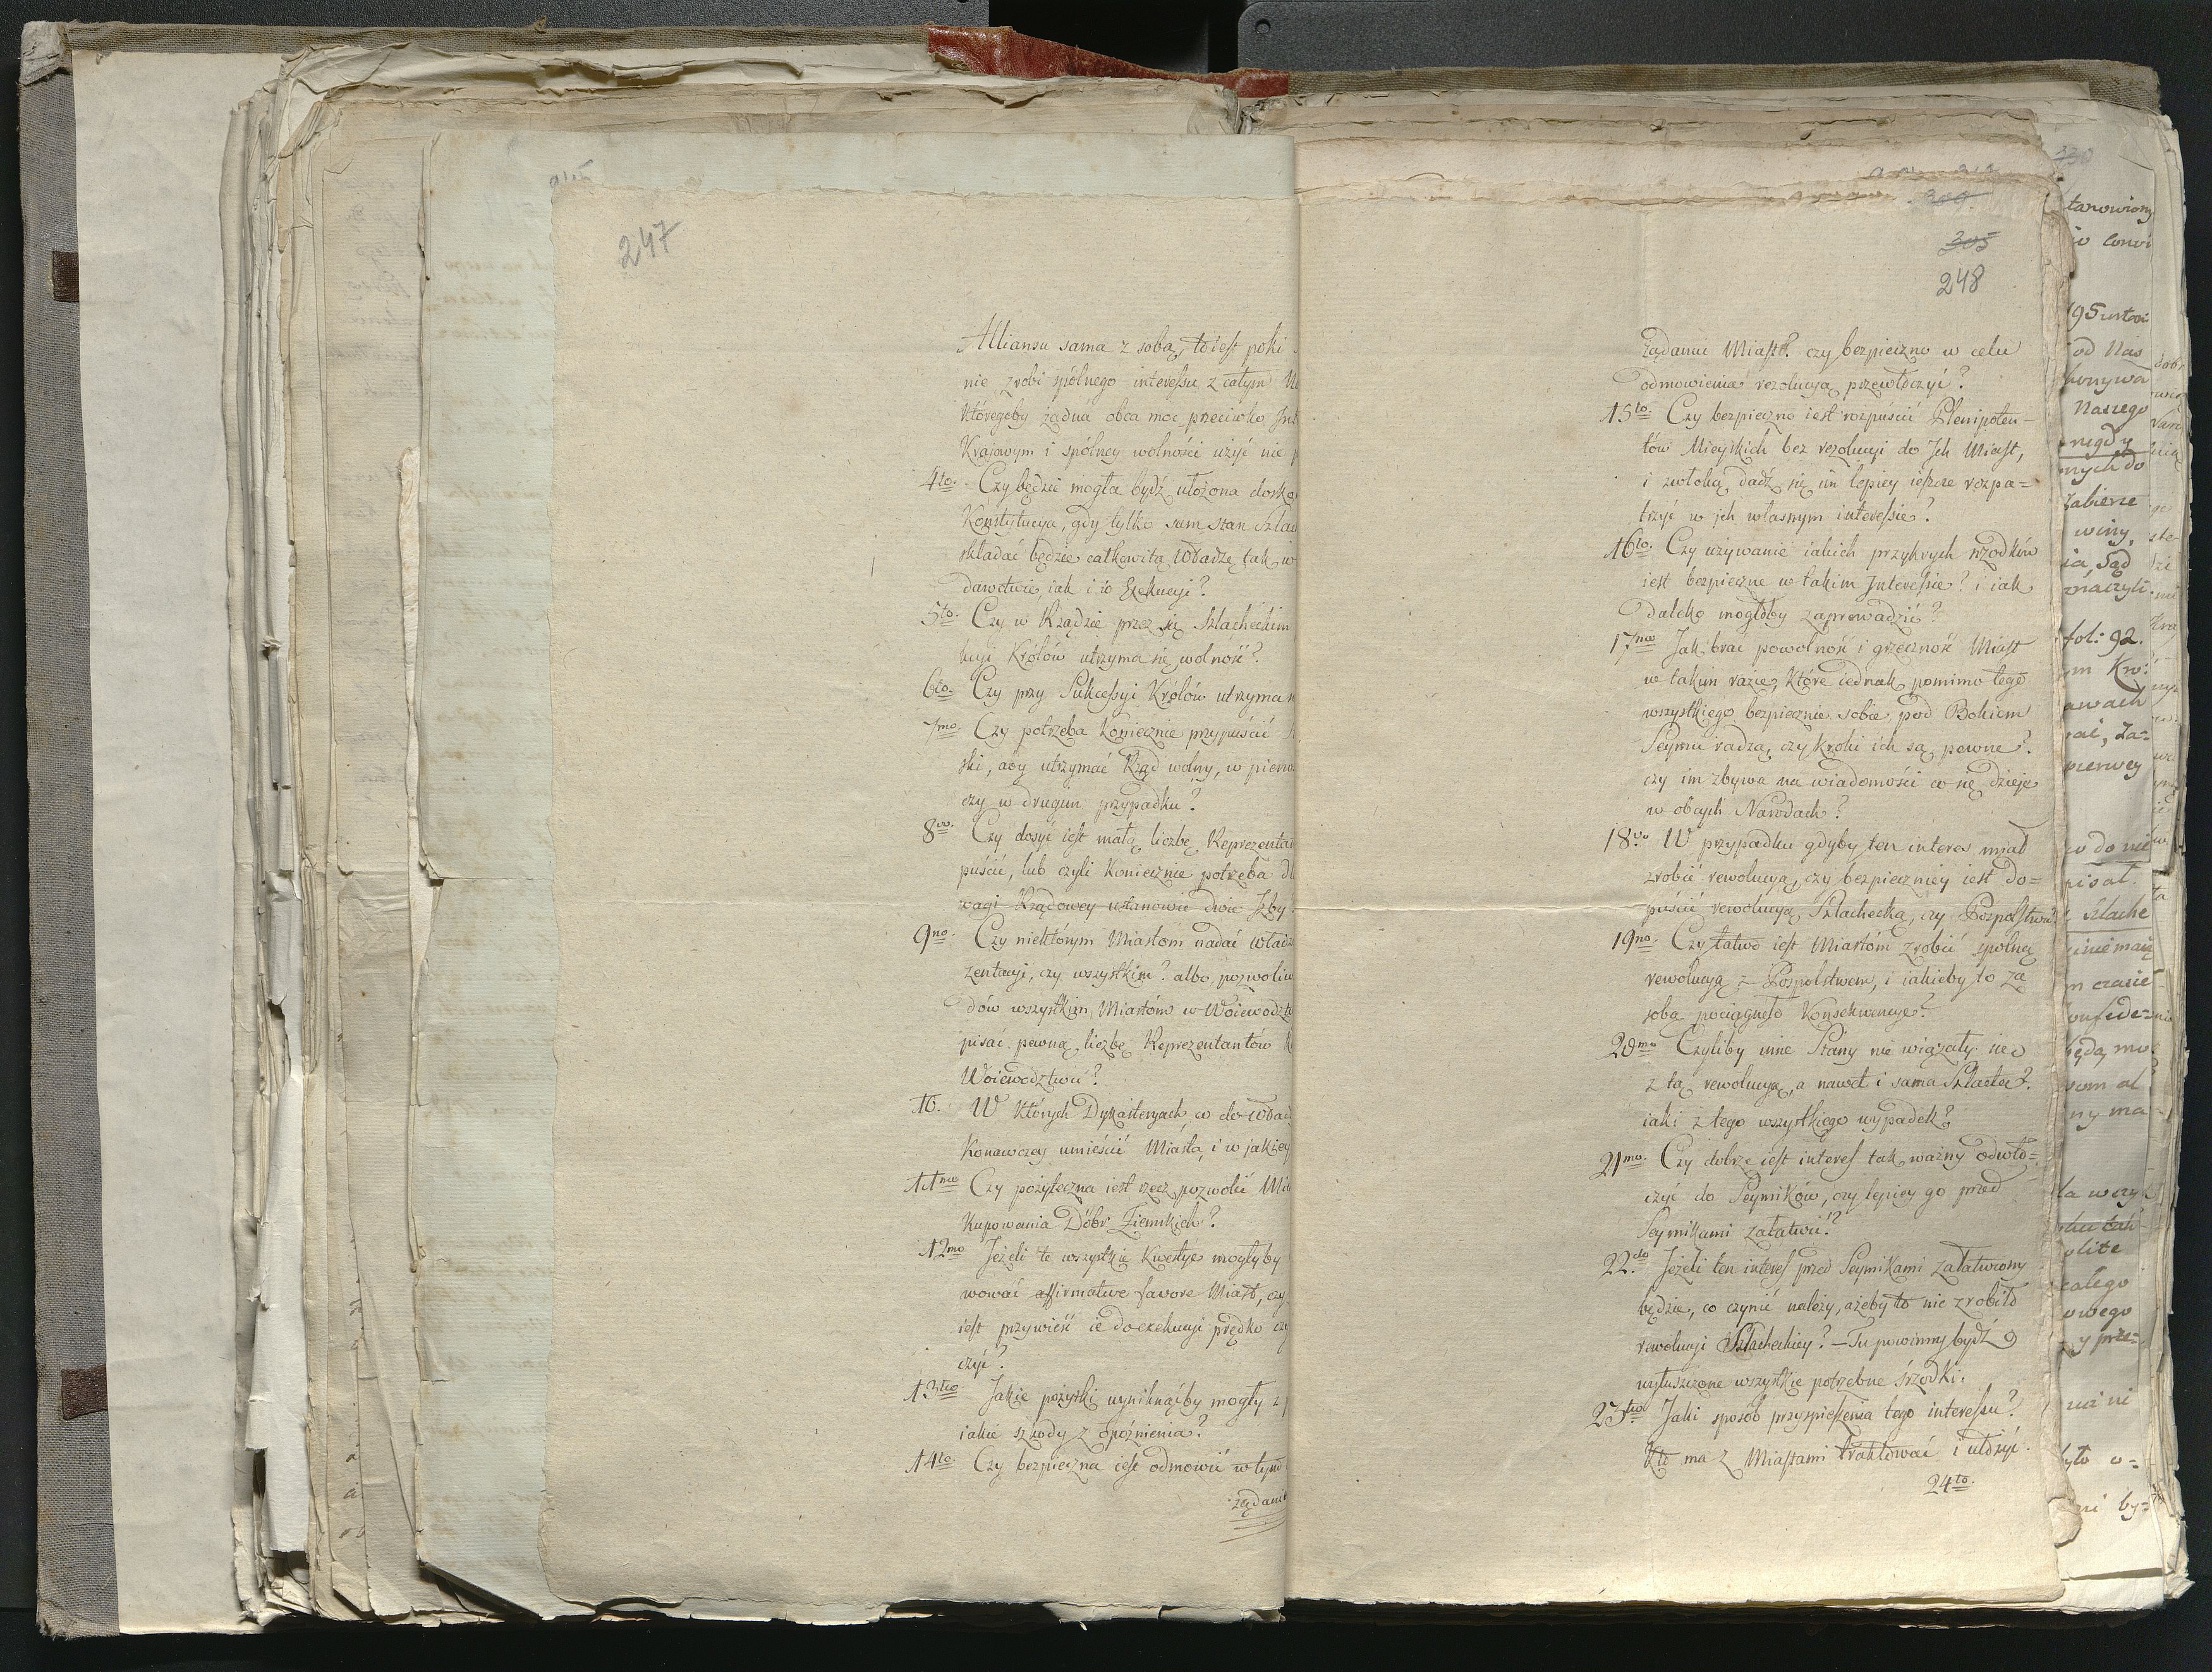 247
Alliansu sama z sobą, to iest poki
nie zrobi spólnego interessu z całym
któregoby żadna obca moc przeciwko
Kraiowym i spólney wolności użyć nie
4to. Czy będzie mogła bydź ułożona dosko
Konstytucya, gdy tylko sam stan Szlac
składać będzie całkowitą Władzę tak w
dawctwie, iak i w Exekucyi?
5to. Czy w Rządzie przez się Szlacheckim
kcyi Królów utrzyma się wolność?
6to. Czy przy Sukcessyi Królów utrzyma
7mo. Czy potrzeba koniecznie przypuścić
ski, aby utrzymać Rząd wolny, w pierw
czy w drugim przypadku?
8vo. Czy dosyć iest małą liczbę Reprezenta
puścić, lub czyli koniecznie potrzeba
wagi Rządowey ustanowić dwie Izby
9no. Czy niektórym Miastom nadać władz
zentacyi, czy wszystkim? albo pozwoliw
dów wszystkim Miastóm w Woiewództw
pisać pewną liczbę Reprezentantów
Woiewództwu?
10. W których Dykasteryach co do Wład
Konawczey umieścić Miasta, i w jakiey
11mo Czy pożyteczna iest rzecz pozwolić Mia
Kupowania Dóbr Ziemskich?
12mo Jeżeli te wszystkie kwestye mogłyby
wować affirmative favore Miast, czy
iest przywieść ie do exekucyi prędko czy
czyć?
13tio Jakie pożytki wyniknąćby mogły z
iakie szkody z opóźnienia?
14to. Czy bezpieczna iest odmowić w tym
żądani
305
248
żądaniu Miast? czy bezpieczno w celu
odmowienia rezolucyą przewłoczyć?
15to. Czy bezpieczno iest rozpuścić Plenipoten-
tów Mieyskich bez rezolucyi do Ich Miast,
i zwłoką dadź się im lepiey ieszcze rozpa=
trzyć w ich własnym interessie?
16to. Czy używanie iakich przykrych srzodków
iest bezpieczne w takim Interessie? i iak
daleko mogłoby zaprowadzić?
17mo Jak brać powolność i grzeczność Miast
w takim razie, które iednak pomimo tego
wszystkiego bezpiecznie sobie pod Bokiem
Seymu radzą, czy kroki ich są pewne?
czy im zbywa na wiadomości co się dzieje
w obcych Narodach?
18vo W przypadku gdyby ten interes miał
zrobić rewolucyą, czy bezpieczniey iest do=
puścić rewolucyą Szlachecką, czy Pospolstwa?
19no. Czy łatwo iest Miastóm zrobić spolną
rewolucyą z Pospolstwem, i iakieby to za
sobą pociągnęło Konsekwencye?
20mo Czyliby inne Stany nie wiązały się
z tą rewolucyą, a nawet i sama Szlachta?
iaki z tego wszystkiego wypadek?
21mo. Czy dobrze iest interes tak ważny odwło=
czyć do Seymików, czy lepiey go przed
Seymikami załatwić?
22do. Jeżeli ten interes przed Seymikami załatwiony
będzie, co czynić należy, ażeby to nie zrobiło
rewolucyi Szlacheckiey? – Tu powinny bydź
wytłuszczone wszystkie potrzebne śrzodki.
23tio Jaki sposób przyspieszenia tego interessu?
Kto ma z Miastami traktować i ułożyć.
24to.
tanowiony
od Nas
Naszego
nigdy
nych do
zabierze
winy,
Sąd
znaczyli
fol: 92.
pierwey
do nie
pisał.
Szlache
m czasie
onfede=
będą mo
całego
owego
y prze=
by=